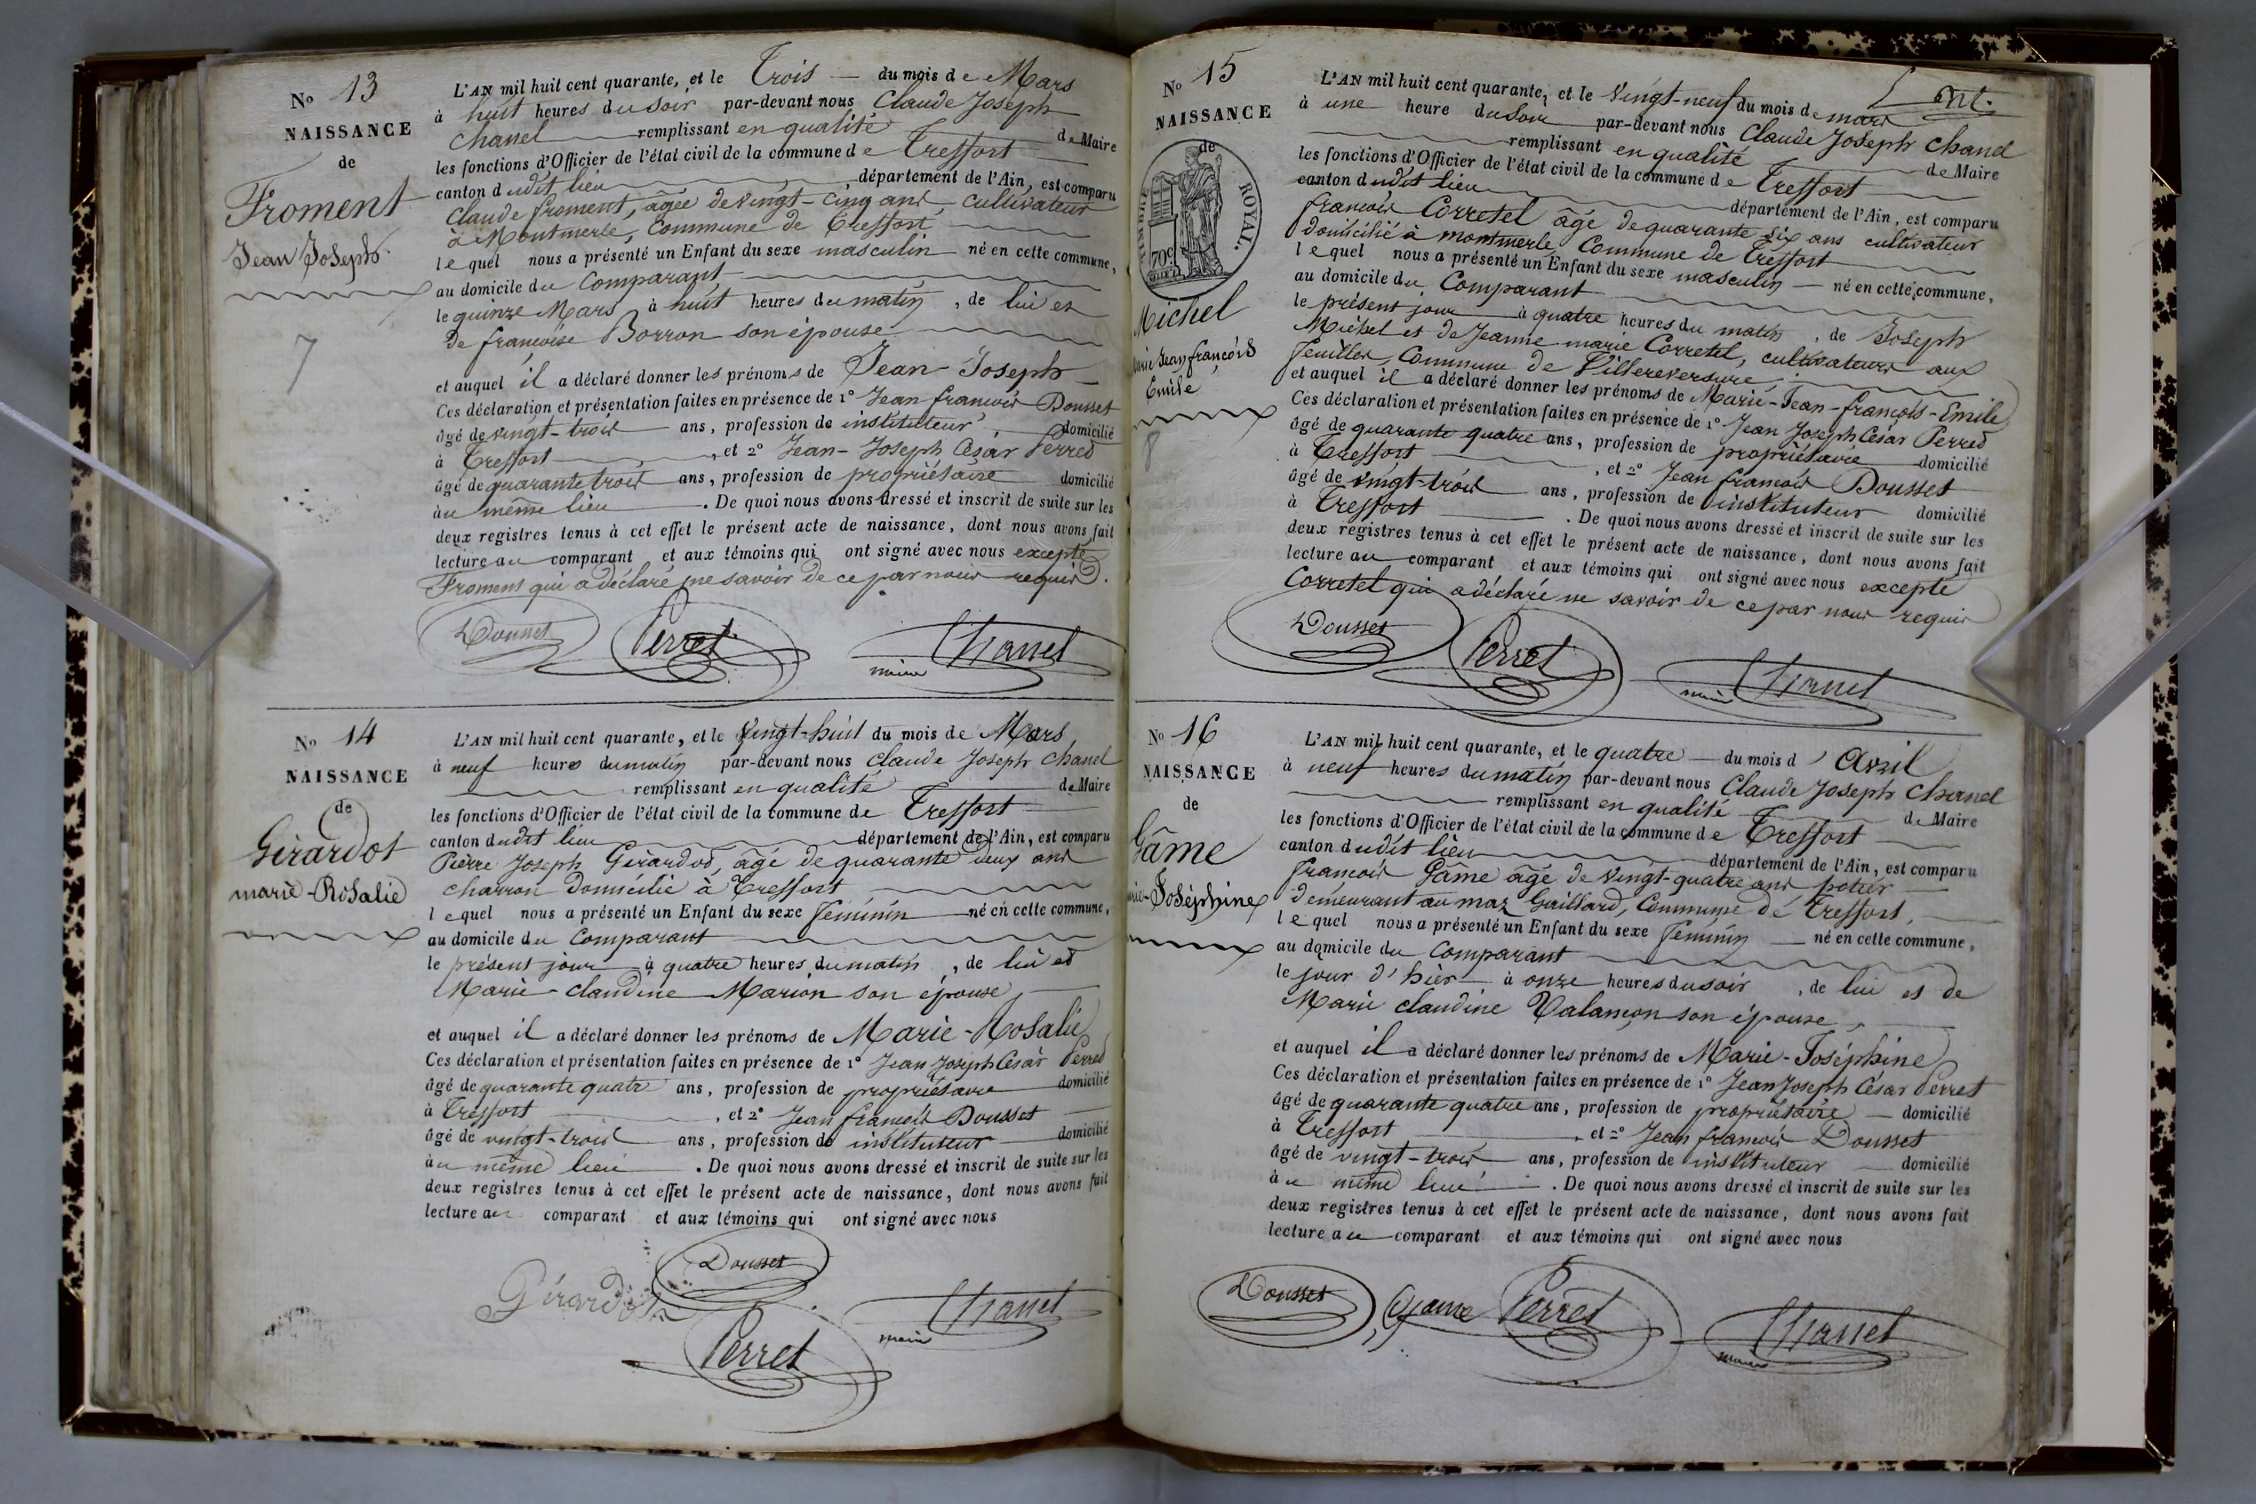 No 13
NAISSANCE
de
Froment
Jean Joseph
7
L'AN mil huit cent quarante, et le Trois du mois de Mars
à huit heures du soir par-devant nous Claude Joseph
Chanel remplissant en qualité de Maire
les fonctions d'Officier de l'état civil de la commune de Treffort
canton dudit lieu département de l'Ain, est comparu
Claude froment, âgée de vingt-cinq ans, cultivateur
à Montmerle, Commune de Treffort,
lequel nous a présenté un Enfant du sexe masculin né en cette commune,
au domicile du Comparant
le quinze Mars à huit heures du matin, de lui et
de françoise Borron son épouse
et auquel il a déclaré donner les prénoms de Jean Joseph
Ces déclaration et présentation faites en présence de 1° Jean françois Dousset
âgé de vingt-trois ans, profession de instituteur domicilié
à Treffort, et 2° Jean-Joseph César Perret
âgé de quarante trois ans, profession de propriétaire domicilié
au même lieu. De quoi nous avons dressé et inscrit de suite sur les
deux registres tenus à cet effet le présent acte de naissance, dont nous avons fait
lecture au comparant et aux témoins qui ont signé avec nous excepté
Froment qui a déclaré ne savoir de ce par nous requis.
Dousset Perret Chanel
maire
No 14
NAISSANCE
de
Gérardot
marie-Rosalie
L'AN mil huit cent quarante, et le vingt-huit du mois de Mars
à neuf heures du matin par-devant nous Claude Joseph Chanel
remplissant en qualité de Maire
les fonctions d'Officier de l'état civil de la commune de Treffort
canton dudit lieu département de l'Ain, est comparu
Pierre Joseph Gérardot, âgé de quarante deux ans
charron domicilié à Treffort
lequel nous a présenté un Enfant du sexe féminin né en cette commune,
au domicile du Comparant
le présent jour à quatre heures du matin, de lui et
Marie-claudine Marion son épouse
et auquel il a déclaré donner les prénoms de Marie-Rosalie
Ces déclaration et présentation faites en présence de 1° Jean Joseph César Perret
âgé de quarante quatre ans, profession de propriétaire domicilié
à Treffort, et 2° Jean françois Dousset
âgé de vingt-trois ans, profession de instituteur domicilié
au même lieu. De quoi nous avons dressé et inscrit de suite sur les
deux registres tenus à cet effet le présent acte de naissance, dont nous avons fait
lecture au comparant et aux témoins qui ont signé avec nous
Dousset
Gérardot Chanel
maire
Perret
No 15
NAISSANCE
de
TIMBRE ROYAL.
70c
Michel
Jean françois
Emile
8
L'AN mil huit cent quarante, et le vingt-neuf du mois de mars
à une heure du soir par-devant nous Claude Joseph Chanel
remplissant en qualité de Maire
les fonctions d'Officier de l'état civil de la commune de Treffort
canton dudit lieu département de l'Ain, est comparu
françois Corretel âgé de quarante six ans cultivateur
domicilié à montmerle Commune de Treffort
lequel nous a présenté un Enfant du sexe masculin né en cette commune,
au domicile du Comparant
le présent jour à quatre heures du matin, de Joseph
Michel et de Jeanne marie Corretel, cultivateurs aux
feuilles, Commune de Villereversure,
et auquel il a déclaré donner les prénoms de Marie-Jean-françois-Emile
Ces déclaration et présentation faites en présence de 1° Jean Joseph César Perret
âgé de quarante quatre ans, profession de propriétaire domicilié
à Treffort, et 2° Jean françois Dousset
âgé de vingt-trois ans, profession de instituteur domicilié
à Treffort. De quoi nous avons dressé et inscrit de suite sur les
deux registres tenus à cet effet le présent acte de naissance, dont nous avons fait
lecture au comparant et aux témoins qui ont signé avec nous excepté
Corretel qui a déclaré ne savoir de ce par nous requis
Dousset Perret Chanel
maire
No 16
NAISSANCE
de
Gâme
Joséphine
L'AN mil huit cent quarante, et le quatre du mois d'Avril
à neuf heures du matin par-devant nous Claude Joseph Chanel
remplissant en qualité de Maire
les fonctions d'Officier de l'état civil de la commune de Treffort
canton dudit lieu département de l'Ain, est comparu
françois Gâme âgé de vingt-quatre ans potier
demeurant au maz Gaillard, Commune de Treffort,
lequel nous a présenté un Enfant du sexe féminin né en cette commune,
au domicile du Comparant
le jour d'hier à onze heures du soir, de lui et de
Marie claudine Valançon son épouse
et auquel il a déclaré donner les prénoms de Marie-Joséphine
Ces déclaration et présentation faites en présence de 1° Jean Joseph César Perret
âgé de quarante quatre ans, profession de propriétaire domicilié
à Treffort, et 2° Jean françois Dousset
âgé de vingt-trois ans, profession de instituteur domicilié
au même lieu. De quoi nous avons dressé et inscrit de suite sur les
deux registres tenus à cet effet le présent acte de naissance, dont nous avons fait
lecture au comparant et aux témoins qui ont signé avec nous
Dousset Game Perret Chanel
maire